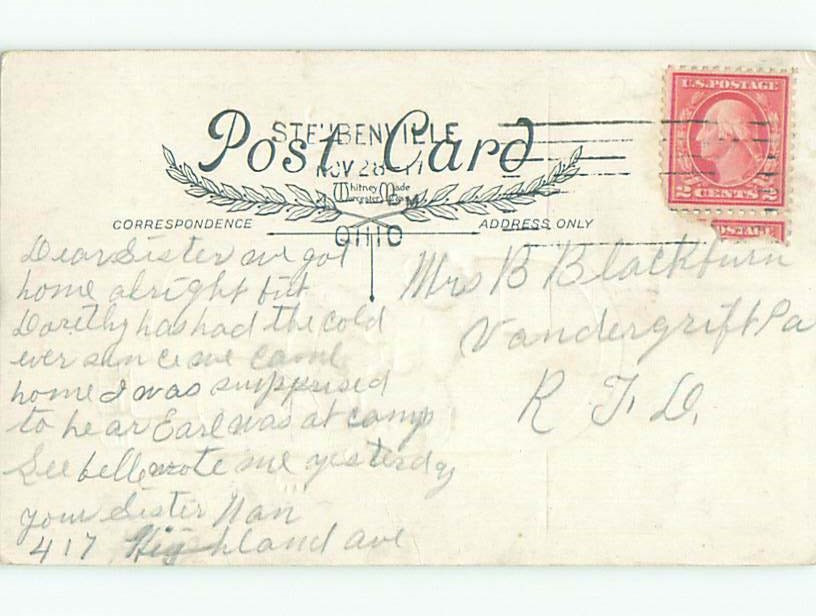 U.S. POSTAGE
2 CENTS 2
POSTAGE
STEUBENVILLE
NOV 28
PM
OHIO
Post Card
Whitney Made
Worcester, Mass
CORRESPONDENCE
ADDRESS ONLY
Dear Sister we got
home alright but
Dorithy has had the cold
ever sin ce we came
home I was surpprised
to he ar Earl was at camp
bell wrote me yesterday
your Sister Nan
417 Highland ave
Mrs B Blackburn
Vandergrift Pa
R. F. D.